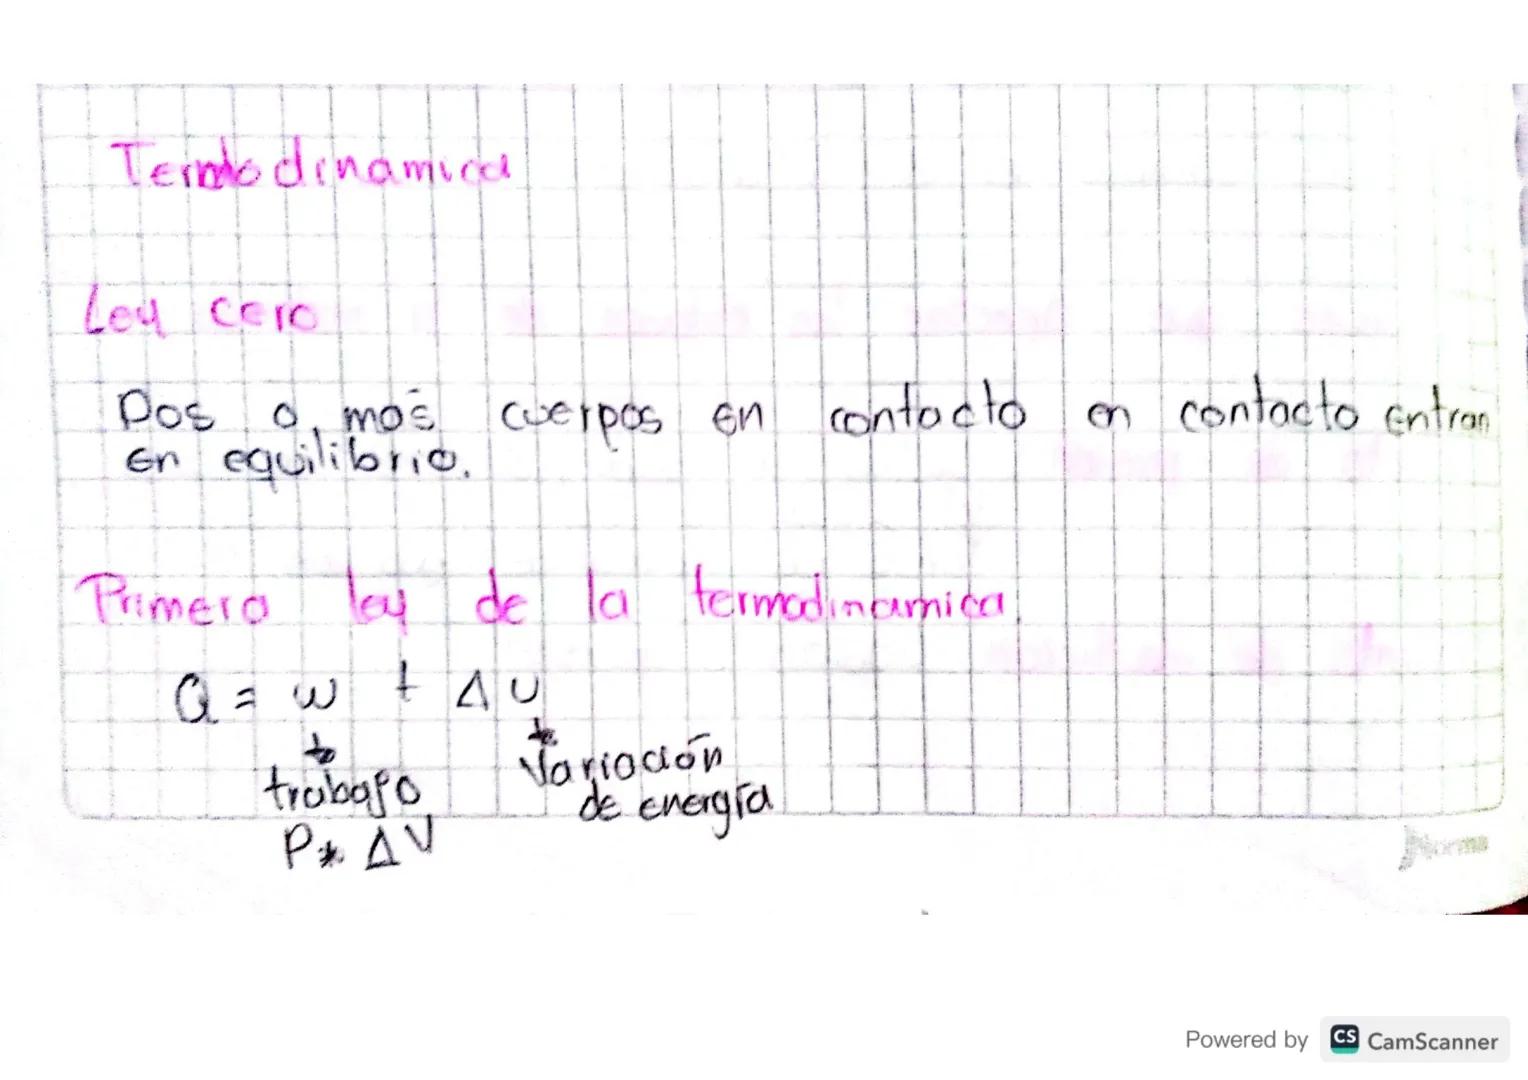 Termodinamica
Ley cero
Dos o mas cuerpos en contacto en contacto entran
en equilibrio.
Primera ley de la termodinamica
Q = w + Δu
trabajo
Variación
de energía
P* ΔV
Norma
Powered by CS CamScanner